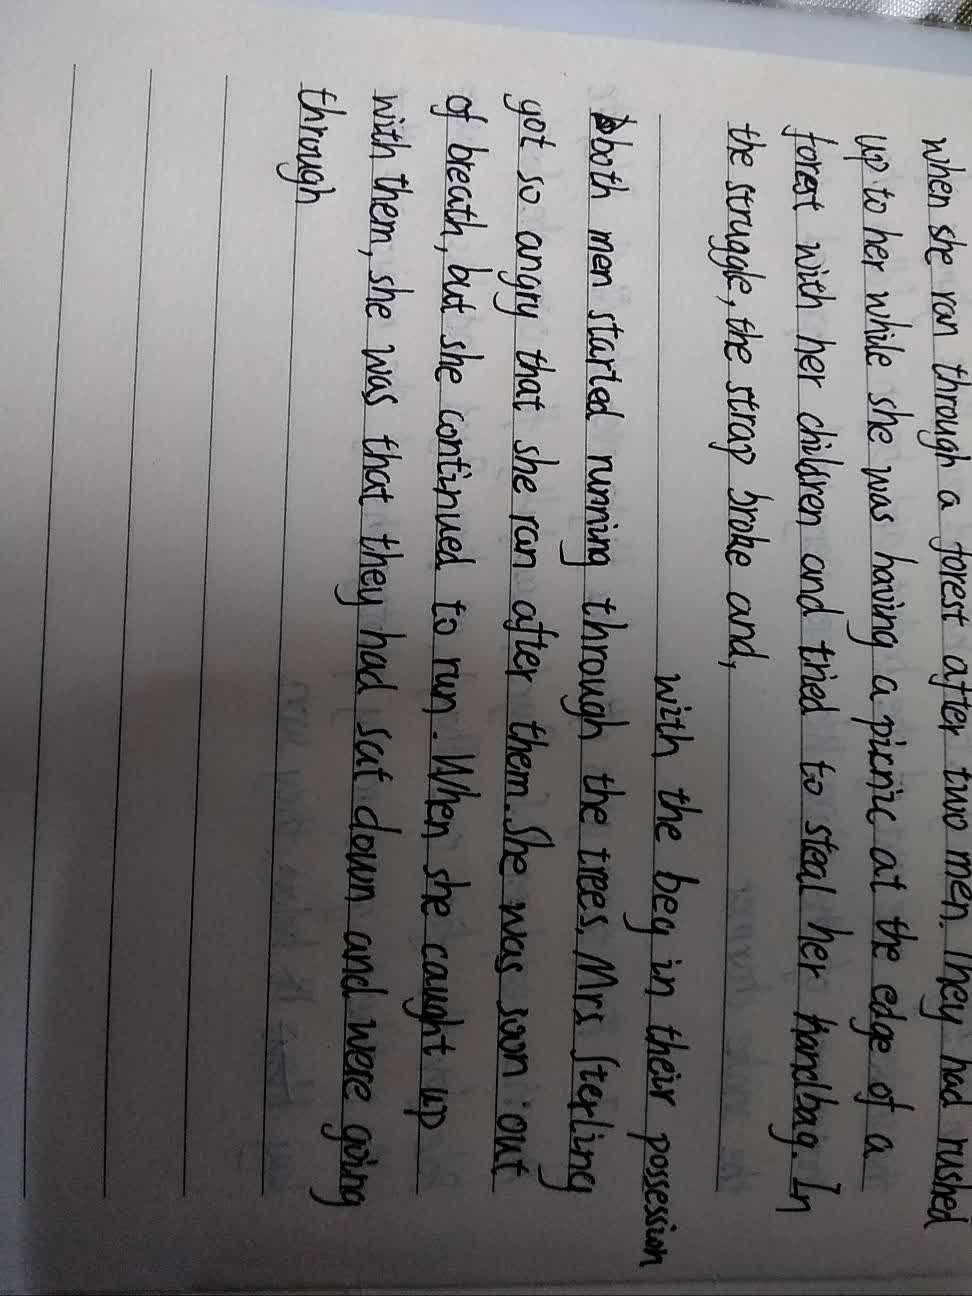 when she ran through a forest after two men. They had rushed
up to her while she was having a picnic at the edge of a
forest with her children and tried to steal her handbag. In
the struggle, the strap broke and,
with the beg in their possession
both men started running through the trees. Mrs Sterling
got so angry that she ran after them. She was soon out
of breath, but she continued to run. When she caught up
with them, she was that they had sat down and were going
through